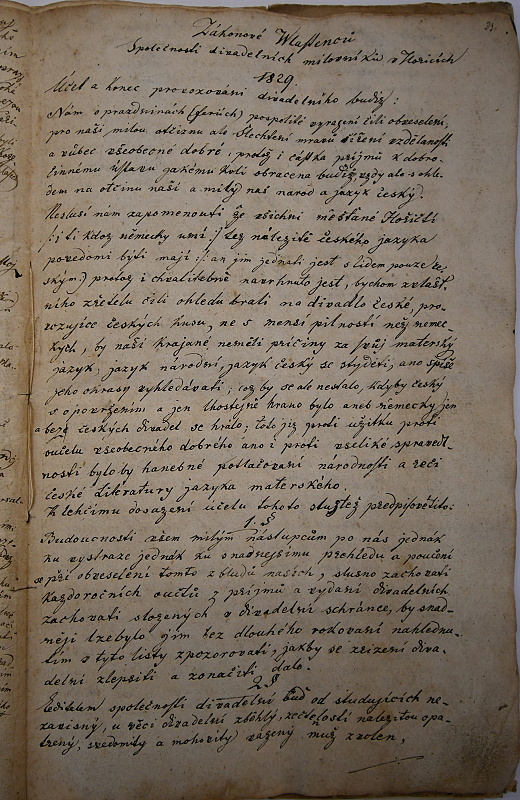 Zákonové Wlastencú
Společnosti divadelních milovníků v Hořicích
1829.
Účel a konec provozování divadelního budiž:
Nám o prazdninách (feruch) pospolité vyražení čili obveselení,
pro naši milou otčinu ale šlechtění mravů šíření vzdělanosti
a vůbec všeobecné dobré, protož i částka příjmů k dobro-
činnému ústavu jakému koli obracena budiž vždy ale s ohle-
dem na otčinu naši a milý náš národ a jazyk český.
Neslusí nám zapomenouti že všichni měšťané Hořičtí
/:i ti kdož německy umí:/ též náležitě českého jazyka
povědomi býti mají /: an jim jednati jest s lidem pouze če-
ským:/ protož i chvalitebně navrhnuto jest, bychom zvlášt-
ního zřetele čili ohledu brali na divadlo české, pro-
vozujíce českých kusů, ne s menší pilností než němec-
kých, by naši krajané neměli příčiny za svůj materský
jazyk, jazyk národní, jazyk český se styděti, ano spíše
jeho okrasy vyhledávati; což by se ale nestalo, kdyby český
s opovržením a jen lhostejně hráno bylo aneb německy jen
a beze českých divadel se hrálo; toto již proti užitku proti
oučelu všeobecného dobrého ano i proti všeliké spravedl-
nosti bylo by hanebné potlačování národnosti a řeči
české literatury jazyka materského.
K lehčímu dosažení účelu tohoto slušlež předpisovětito:
1. §
Budoucnosti všem milým nástupcům po nás jednák
ku výstraze jednák ku snadnejšímu přehledu a poučení
se při obveselení tomto z bludů našich, slušno zachovati
každoročních oučtů z příjmů a vydání divadelních
zachovati složených v divadelní schránce, by snad-
něji lze bylo jim bez dlouhého rokování nahlédnu-
tím v tyto listy zpozorovati, jakby se zřízení diva-
delní zlepšiti a zonačiti dalo.
2. §
Ředitelem společnosti divadelní buď od studujících ne-
závisný, u věci divadelní zběhlý, sečtělostí náležitou opa-
třený, svědomitý a mohovitý vážený muž zvolen,